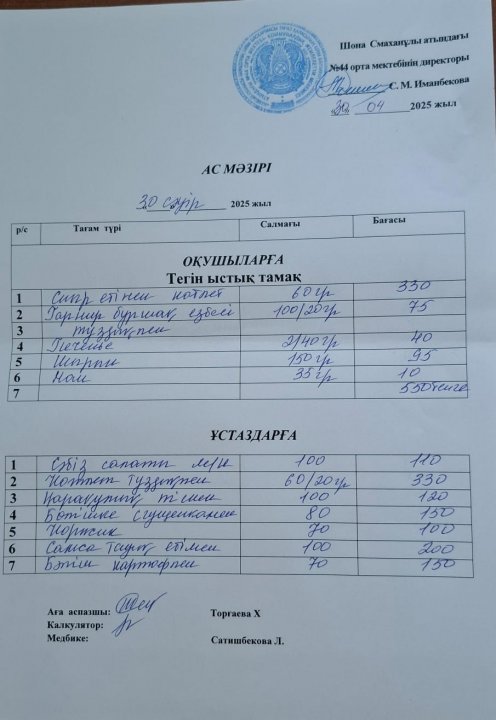 Шона Смаханұлы атындағы
№44 орта мектебінің директоры
С. М. Иманбекова
30 04 2025 жыл
АС МӘЗІРІ
30 сәуір 2025 жыл
р/с Тағам түрі Салмағы Бағасы
ОҚУШЫЛАРҒА
Тегін ыстық тамақ
1 Сиыр етінен котлет 60гр 330
2 Гарнир бұршақ езбесі 100/20гр 75
3 тұздықпен
4 Печенье 2/40гр 40
5 Шырын 150гр 95
6 Нан 35гр 10
7 550теңге
ҰСТАЗДАРҒА
1 Сәбіз салаты 100 110
2 Котлет тұздықпен 60/20гр 330
3 Қарақұмық 100 120
4 Бәтішке сгущенкамен 80 150
5 Коржик 70 100
6 Самса тауық етімен 100 200
7 Бәтін картофпен 70 150
Аға аспазшы: Торғаева Х
Калкулятор:
Медбике: Сатишбекова Л.